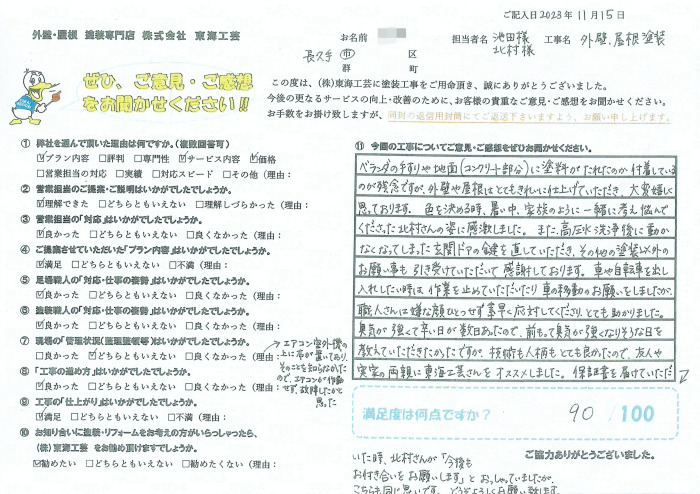 ご記入日 2023年 11月 15日
外壁・屋根 塗装専門店 株式会社 東海工芸
お名前
担当者名 池田様 北村様 工事名 外壁、屋根塗装
長久手 市 区
群 町
ぜひ、ご意見・ご感想
をお聞かせください!!
この度は、(株)東海工芸に塗装工事をご用命頂き、誠にありがとうございました。
今後の更なるサービスの向上・改善のために、お客様の貴重なご意見・ご感想をお聞かせください。
お手数をお掛け致しますが、同封の返信用封筒にてご返送下さいますよう、お願い申し上げます。
① 弊社を選んで頂いた理由は何ですか。(複数回答可)
☑プラン内容 □評判 □専門性 ☑サービス内容 ☑価格
□営業担当の対応 □実績 □対応スピード □その他(理由:
② 営業担当のご提案・ご説明はいかがでしたでしょうか。
☑理解できた □どちらともいえない □理解しづらかった(理由:
③ 営業担当の「対応」はいかがでしたでしょうか。
☑良かった □どちらともいえない □良くなかった(理由:
④ ご提案させていただいた「プラン内容」はいかがでしたでしょうか。
☑満足 □どちらともいえない □不満(理由:
⑤ 足場職人の「対応・仕事の姿勢」はいかがでしたでしょうか。
☑良かった □どちらともいえない □良くなかった(理由:
⑥ 塗装職人の「対応・仕事の姿勢」はいかがでしたでしょうか。
☑良かった □どちらともいえない □良くなかった(理由:
⑦ 現場の「管理状況(監理監督等)」はいかがでしたでしょうか。
□良かった ☑どちらともいえない □良くなかった(理由:
エアコン室外機の
上に布が置いてあり、
そのことを知らなかった
ので、エアコンが作動
せず、故障したかと
思った
⑧ 「工事の進め方」はいかがでしたでしょうか。
☑良かった □どちらともいえない □良くなかった(理由:
⑨ 工事の「仕上がり」はいかがでしたでしょうか。
☑満足 □どちらともいえない □不満(理由:
⑩ お知り合いに塗装・リフォームをお考えの方がいらっしゃったら、
(株)東海工芸 をお勧め頂けますでしょうか。
☑勧めたい □どちらともいえない □勧めたくない(理由:
⑪ 今回の工事についてご意見・ご感想をぜひお聞かせください。
ベランダの手すりや地面(コンクリート部分)に塗料がたれたのか付着している
のが残念ですが、外壁や屋根はとてもきれいに仕上げていただき、大変嬉しく
思っております。 色を決める時、暑い中、家族のように一緒に考え悩んで
くださった北村さんの姿に感激しました。また、高圧水洗浄後に動か
なくなってしまった玄関ドアの鍵を直していただき、その他の塗装以外の
お願い事も引き受けていただいて感謝しております。車や自転車を出し
入れしたい時は、作業を止めていただいたり車の移動のお願いをしましたが、
職人さんは嫌な顔ひとつせず素早く対応してくださり、とても助かりました。
臭気が強くて辛い日が数日あったので、前もって臭気が強くなりそうな日を
教えていただきたかったですが、技術も人柄もとても良かったので、友人や
実家の両親に東海工芸さんをオススメしました。保証書を届けていただ
満足度は何点ですか? 90 /100
いた時、北村さんが「今後も
お付き合いをお願いします」とおっしゃっていましたが、
こちらも同じ思いです。どうぞよろしくお願い致します。
ご協力ありがとうございました。